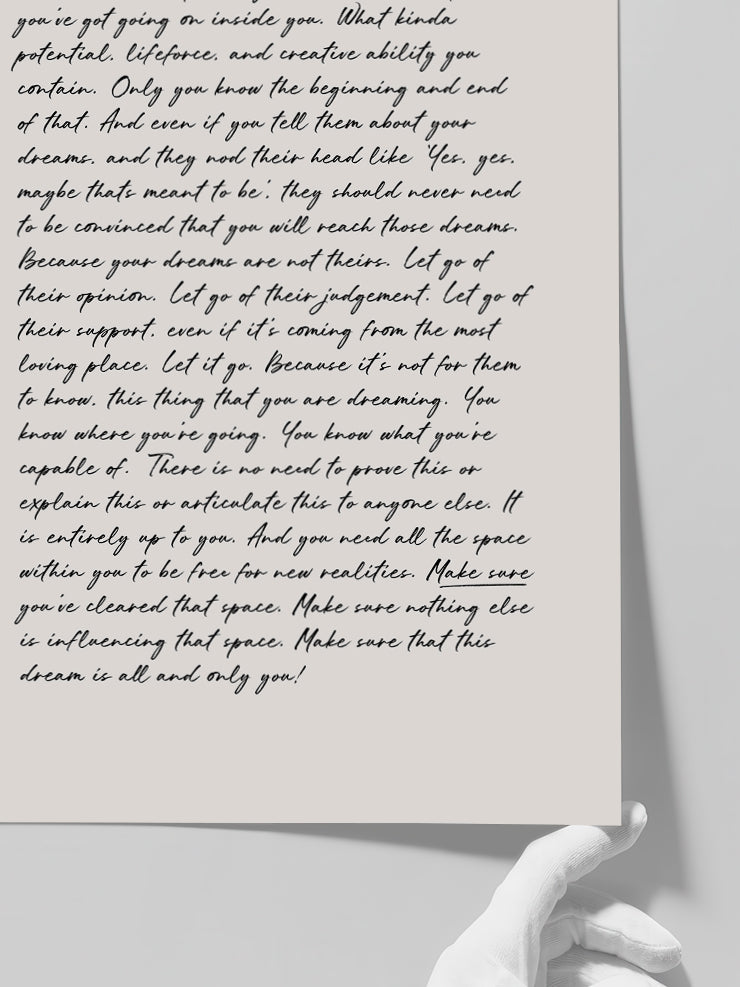 you've got going on inside you. What kinda
potential, lifeforce, and creative ability you
contain. Only you know the beginning and end
of that. And even if you tell them about your
dreams, and they nod their head like 'Yes, yes,
maybe thats meant to be', they should never need
to be convinced that you will reach those dreams.
Because your dreams are not theirs. Let go of
their opinion. Let go of their judgement. Let go of
their support, even if it's coming from the most
loving place. Let it go. Because it's not for them
to know, this thing that you are dreaming. You
know where you're going. You know what you're
capable of. There is no need to prove this or
explain this or articulate this to anyone else. It
is entirely up to you. And you need all the space
within you to be free for new realities. Make sure
you've cleared that space. Make sure nothing else
is influencing that space. Make sure that this
dream is all and only you!